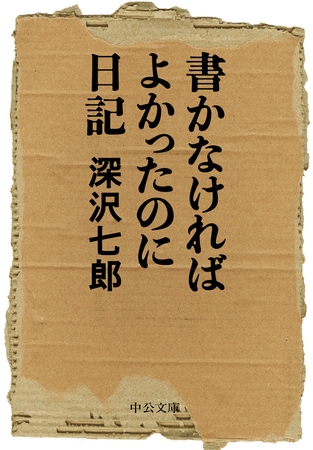 書かなければ
よかったのに
日記 深沢七郎
中公文庫